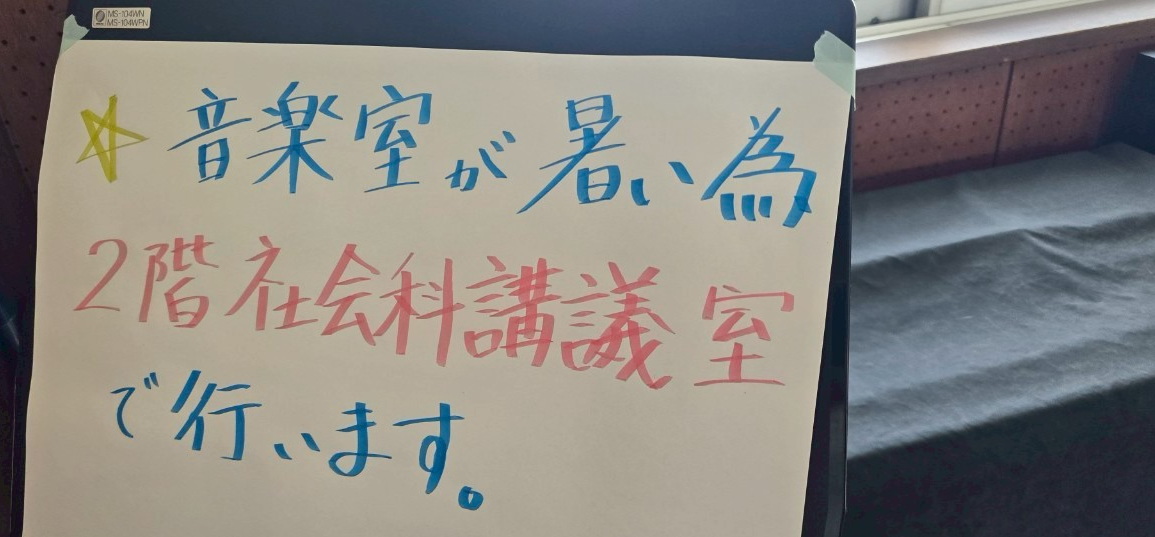 MS-104WN
MS-104WPN
☆音楽室が暑い為
2階社会科講議室
で行います。